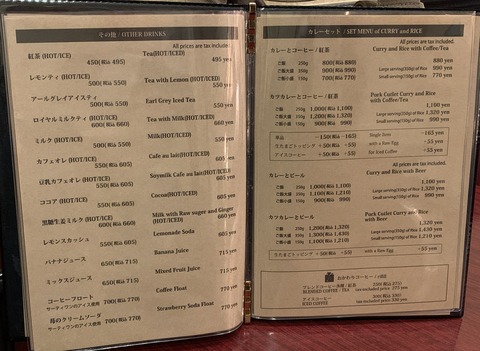 その他 / OTHER DRINKS
All prices are tax included.
紅茶 (HOT/ICE) Tea(HOT/ICED)
450(税込 495) 495 yen
レモンティ (HOT/ICE) Tea with Lemon (HOT/ICED)
500(税込 550) 550 yen
アールグレイアイスティ Earl Grey Iced Tea
500(税込 550) 550 yen
ロイヤルミルクティ (HOT/ICE) Tea with Milk(HOT/ICED)
600(税込 660) 660 yen
ミルク (HOT/ICE) Milk(HOT/ICED)
500(税込 550) 550 yen
カフェオレ (HOT/ICE) Cafe au lait(HOT/ICED)
550(税込 605) 605 yen
豆乳カフェオレ (HOT/ICE) Soymilk Cafe au lait(HOT/ICED)
550(税込 605) 605 yen
ココア (HOT/ICE) Cocoa(HOT/ICED)
550(税込 605) 605 yen
黒糖生姜ミルク (HOT/ICE) Milk with Raw suger and Ginger (HOT/ICED)
600(税込 660) 660 yen
レモンスカッシュ Lemonade Soda
550(税込 605) 605 yen
バナナジュース Banana Juice
650(税込 715) 715 yen
ミックスジュース Mixed Fruit Juice
650(税込 715) 715 yen
コーヒーフロート Coffee Float
サーティワンのアイス使用 700(税込 770) 770 yen
苺のクリームソーダ Strawberry Soda Float
サーティワンのアイス使用 700(税込 770) 770 yen
カレーセット / SET MENU of CURRY and RICE
All prices are tax included.
カレーとコーヒー / 紅茶 Curry and Rice with Coffee/Tea
ご飯 250g 800(税込 880) 880 yen
ご飯大盛 350g 900(税込 990) Large serving(350g)of Rice 990 yen
ご飯小盛 150g 700(税込 770) Small serving(150g)of Rice 770 yen
カツカレーとコーヒー / 紅茶 Pork Cutlet Curry and Rice
with Coffee/Tea
ご飯 250g 1,000(税込 1,100) 1,100 yen
ご飯大盛 350g 1,200(税込 1,320) Large serving(350g)of Rice 1,320 yen
ご飯小盛 150g 900(税込 990) Small serving(150g)of Rice 990 yen
単品 －150(税込 -165) Single Item －165 yen
生たまごトッピング ＋50(税込 ＋55) with a Raw Egg ＋55 yen
アイスコーヒー ＋50(税込 ＋55) for Iced Coffee ＋55 yen
All prices are tax included.
カレーとビール Curry and Rice with Beer
ご飯 250g 1,000(税込 1,100) 1,100 yen
ご飯大盛 350g 1,200(税込 1,320) Large serving(350g)of Rice 1,320 yen
ご飯小盛 150g 900(税込 990) Small serving(150g)of Rice 990 yen
カツカレーとビール Pork Cutlet Curry and Rice
with Beer
ご飯 250g 1,200(税込 1,320) 1,320 yen
ご飯大盛 350g 1,300(税込 1,430) Large serving(350g)of Rice 1,430 yen
ご飯小盛 150g 1,100(税込 1,210) Small serving(150g)of Rice 1,210 yen
生たまごトッピング ＋50(税込 ＋55) with a Raw Egg ＋55 yen
おかわりコーヒー
ブレンドコーヒー 紅茶 250(税込 275)
BLENDED COFFEE / TEA tax-included price 275 yen
アイスコーヒー 300(税込 330)
ICED COFFEE tax-included price 330 yen